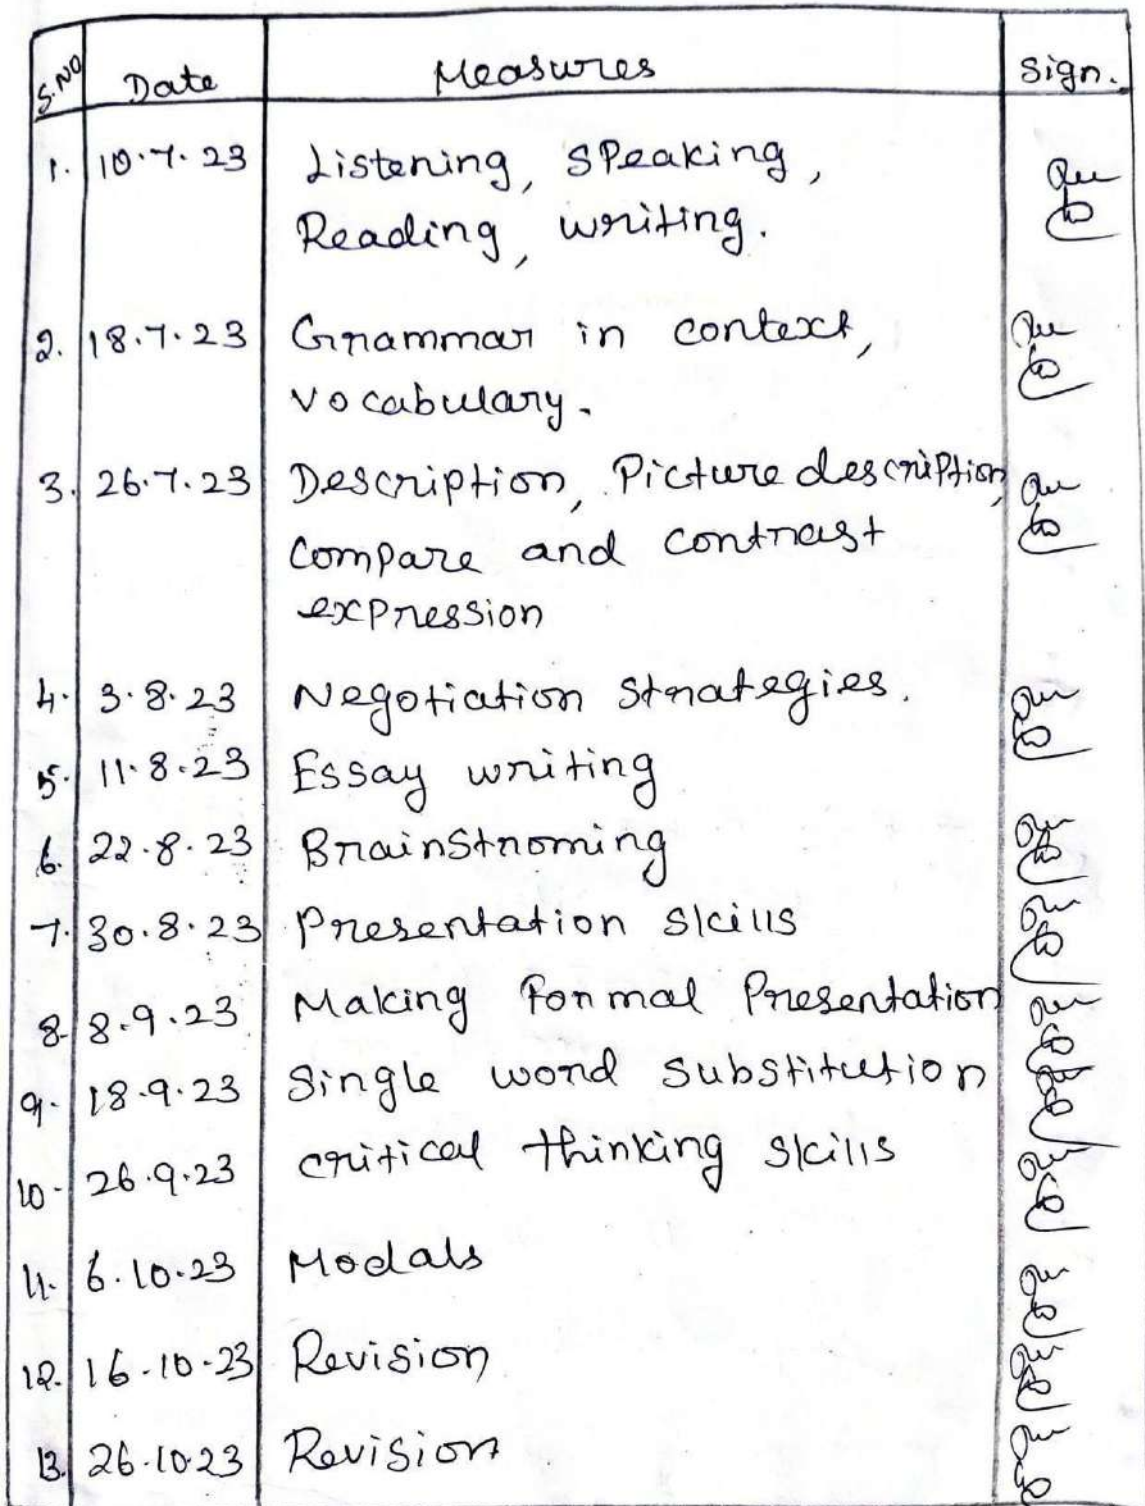 S.NO Date Measures Sign.
1. 10.7.23 Listening, Speaking,
Reading, writing.
2. 18.7.23 Grammar in context,
vocabulary.
3. 26.7.23 Description, Picture description,
compare and contrast
expression
4. 3.8.23 Negotiation strategies.
5. 11.8.23 Essay writing
6. 22.8.23 Brainstroming
7. 30.8.23 Presentation skills
8. 8.9.23 Making Formal Presentation
9. 18.9.23 Single word substitution
10. 26.9.23 critical thinking skills
11. 6.10.23 Modals
12. 16.10.23 Revision
13. 26.10.23 Revision